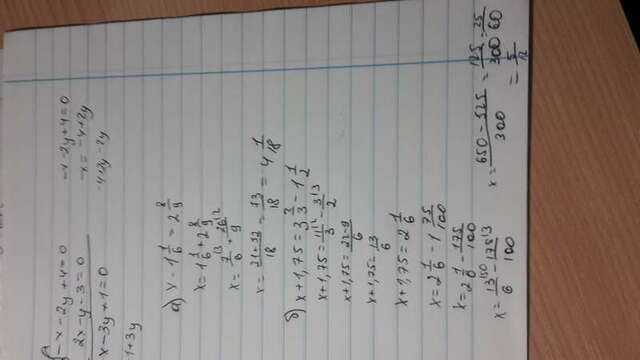 -x-2y+4=0
2x-y-3=0
x-3y+1=0
1+3y
-x-2y+4=0
-x=-4+2y
-4+2y-2y
а) x-1 1/6=2 8/9
x=1 1/6+2 8/9
x=7/6+26/9
x=(21+52)/18=73/18=4 1/18
б) x+1,75=3 2/3-1 1/2
x+1,75=11/3-3/2
x+1,75=(22-9)/6
x+1,75=13/6
x+1,75=2 1/6
x=2 1/6-1 75/100
x=2 1/6-175/100
x=13/6-175/100
x=(650-525)/300=125/300=25/60
=5/12